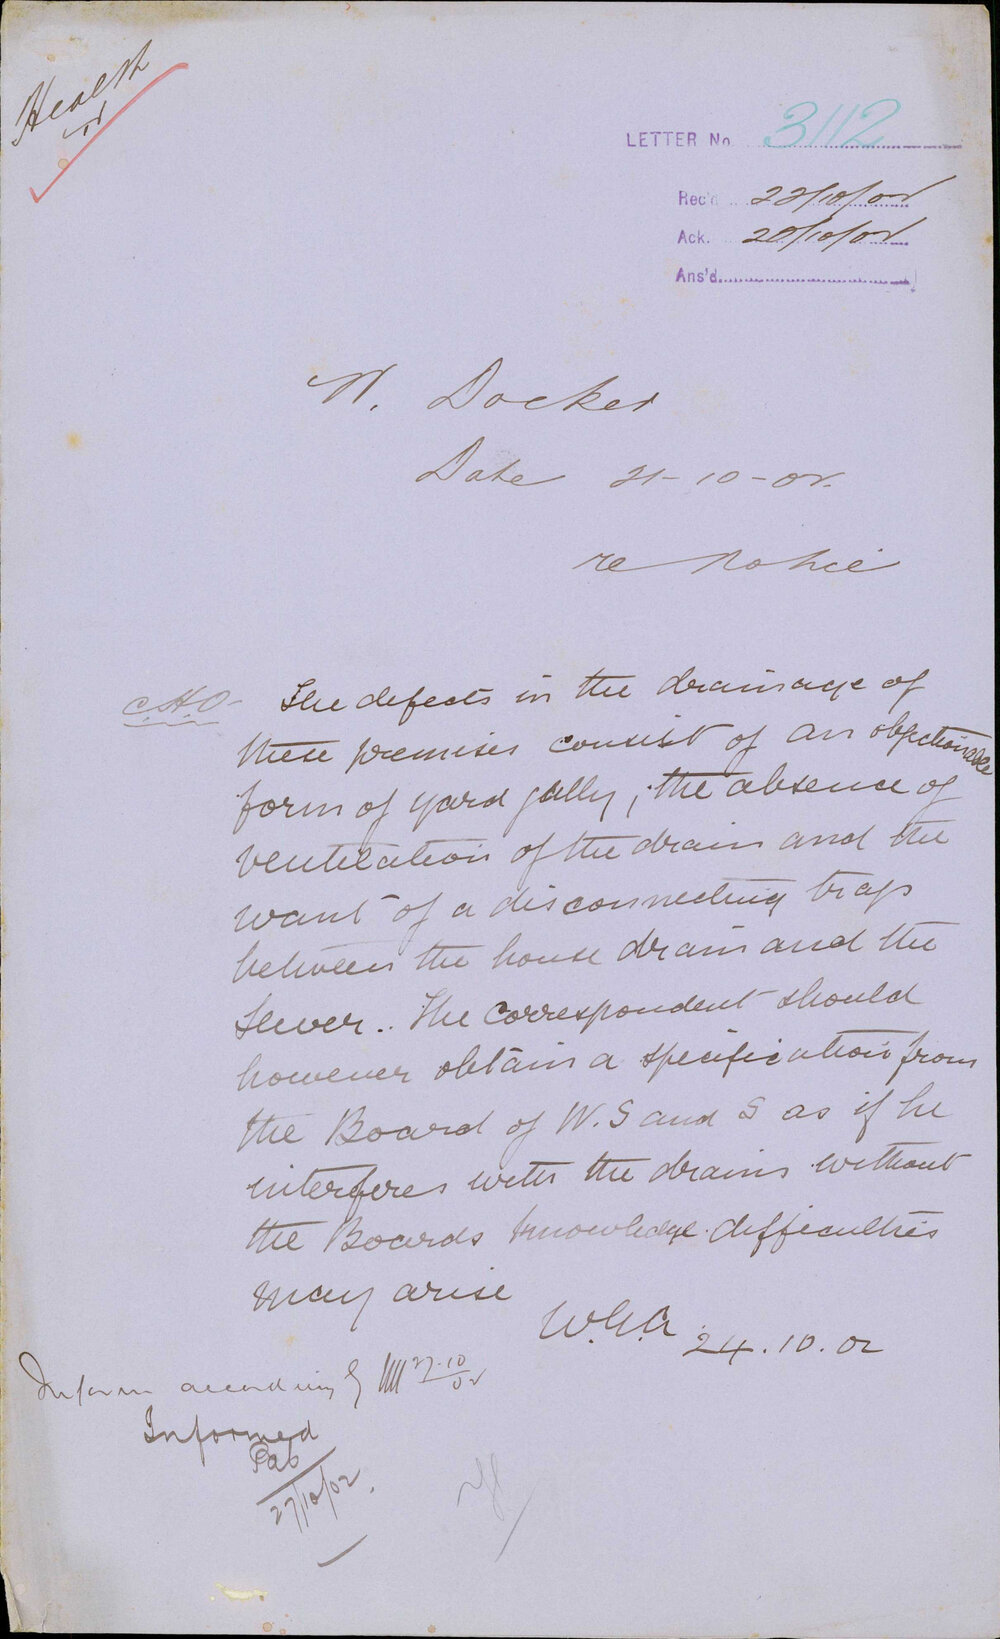 Health
LETTER No 3112
Rec'd 22/10/02
Ack. 20/10/02
Ans'd
W. Docker
Date 21-10-02.
re Notice
C.H.O. The defects in the drainage of
these premises consist of an objectionable
form of yard gully, the absence of
ventilation of the drain and the
want of a disconnecting trap
between the house drain and the
Sewer. The correspondent should
however obtain a specification from
the Board of W.S and S as if he
interferes with the drains without
the Boards knowledge difficulties
may arise
W.G.A. 24.10.02
Inform accordingly 27.10/02
Informed
27/10/02.